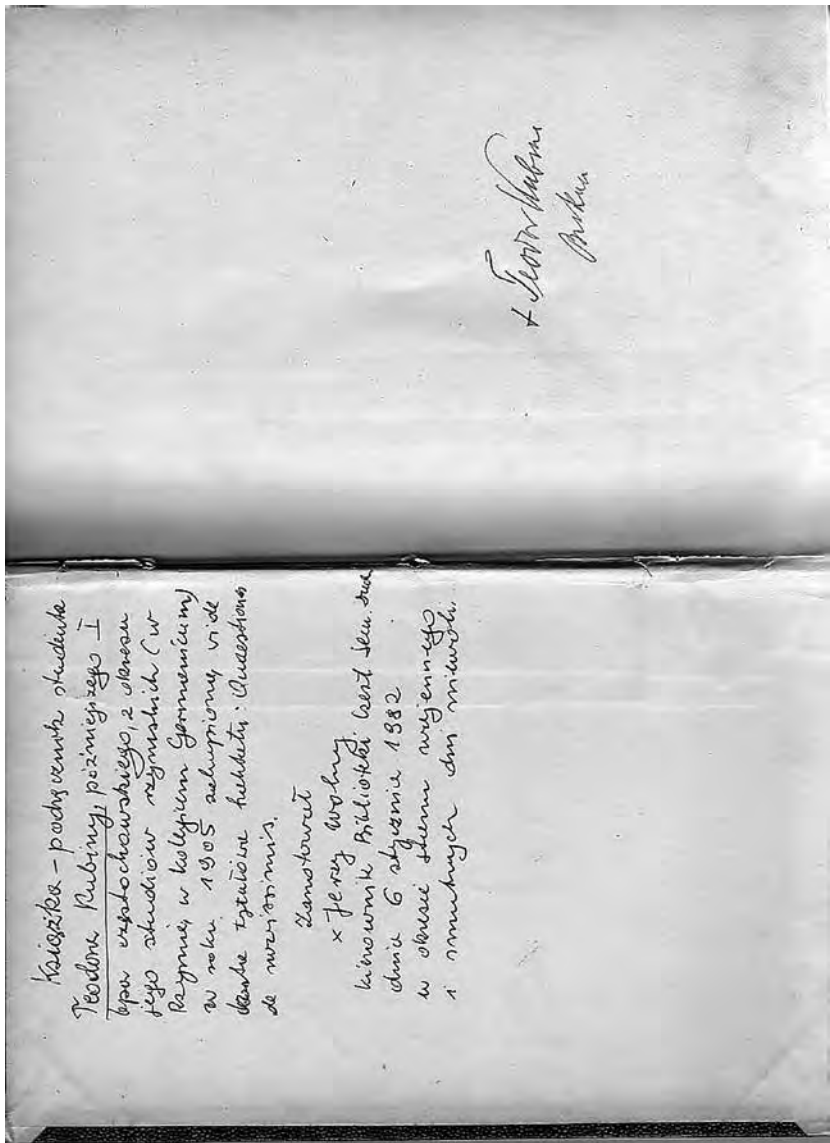 Książka - podręcznik studenta
Teodora Kubiny, późniejszego I
bpa częstochowskiego, z okresu
jego studiów rzymskich (w
Rzymie, w kolegium Germanicum)
w roku 1905 zakupioną, vide
kartę tytułową : Quaestiones
de novissimis.
Zanotował
x Jerzy Wolny
kierownik Biblioteki Częst Sem. Duch
dnia 6 stycznia 1982
w okresie stanu wojennego
i smutnych dni niewoli.
+ Teodor Kubina